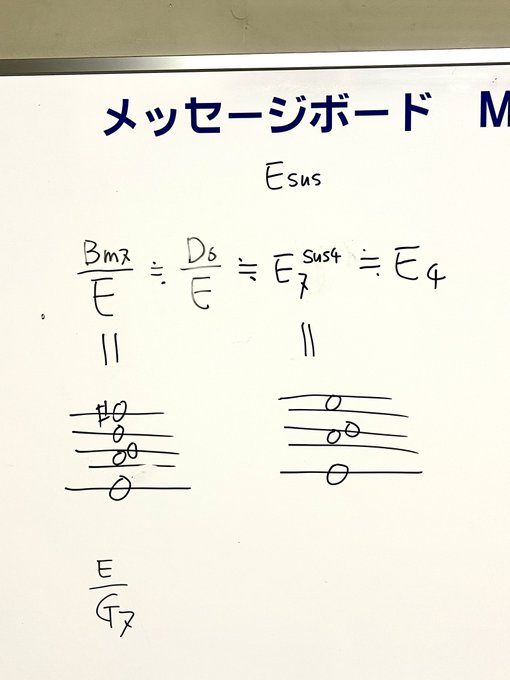 メッセージボード M
Esus
Bm7/E ≒ D6/E ≒ E7sus4 ≒ E4
= =
#
E/G7